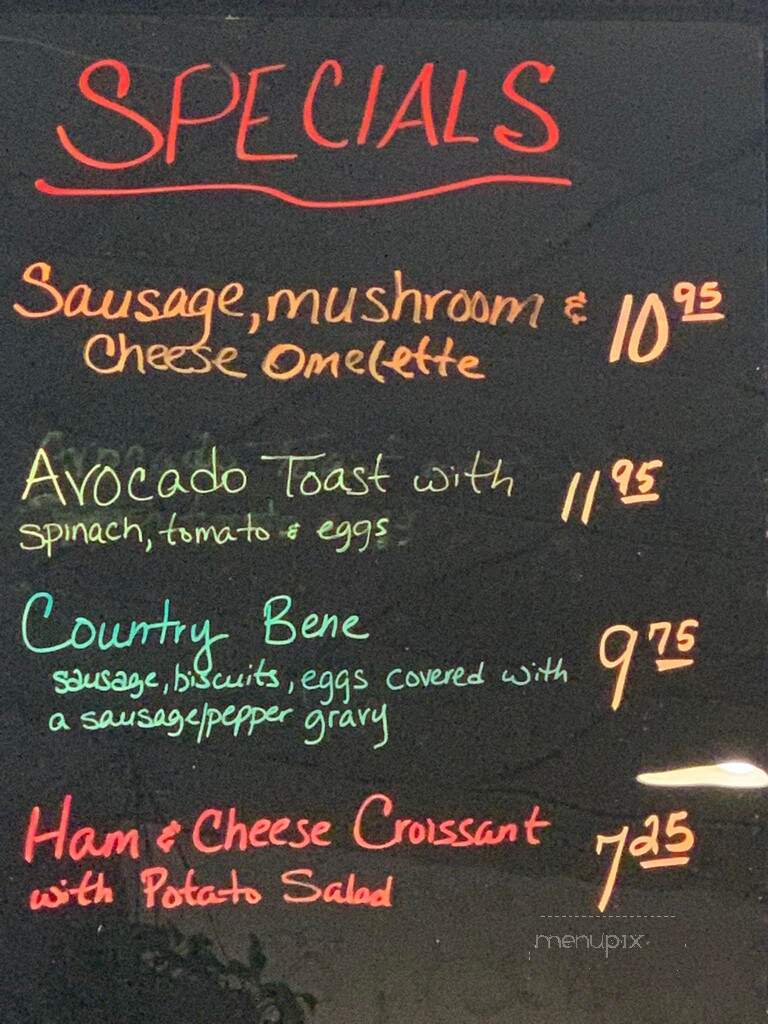 SPECIALS
Sausage, mushroom & 10 95
Cheese Omelette
Avocado Toast with 11 95
spinach, tomato & eggs
Country Bene 9 75
sausage, biscuits, eggs covered with
a sausage/pepper gravy
Ham & Cheese Croissant 7 25
with Potato Salad
menupix